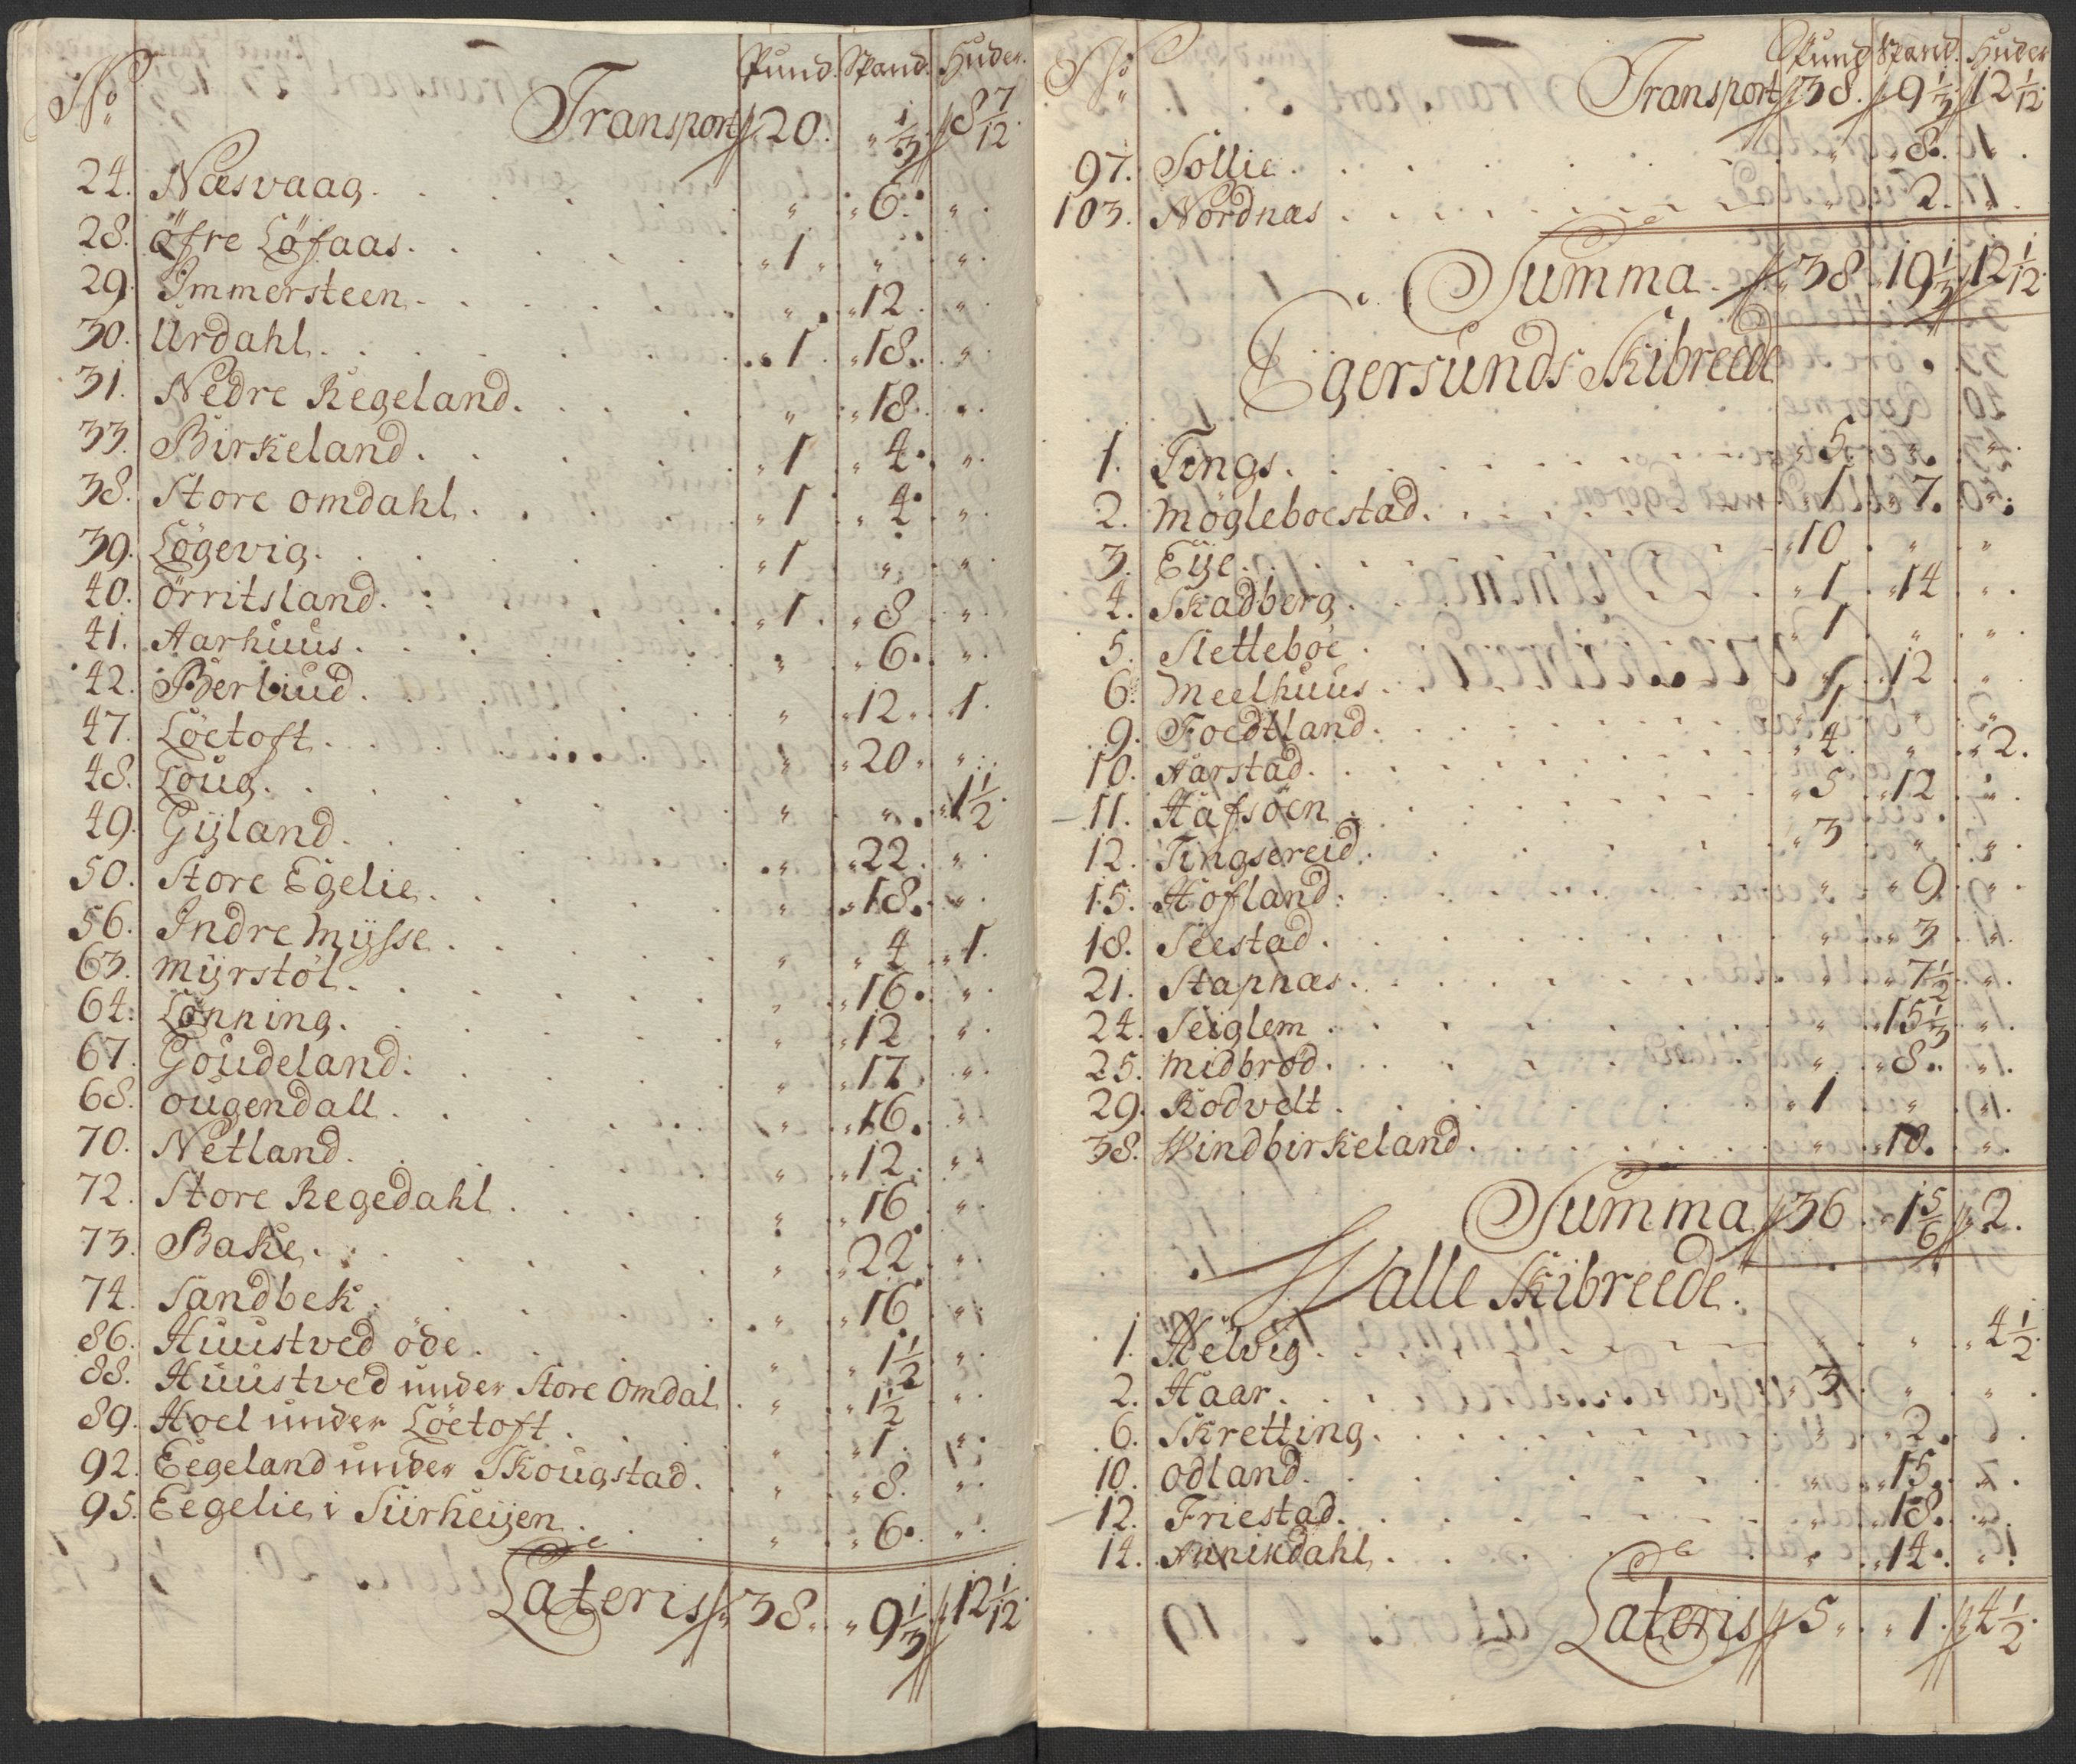 No Pund. Spand. Huder.
Transport 20. " 1/3 8 7/12.
24. Næsvaag. " " 6. "
28. öfre Löfaas. " 1 " " "
29. Immersteen. " " 12. "
30. Urdahl. " 1. " 18. "
31. Nedre Regeland. " " 18. "
33. Birkeland. " 1 " 4. "
38. Store omdahl. " 1 " 4. "
39. Lögevig. " 1 " "
40. örritsland. " 1. " 8 "
41. Aarhuus. " " 6. "
42. Berliud. " " 12. 1.
47. Löetoft. " " 20. "
48. Loug. " " " 1 1/2.
49. Gyland. " " 22. "
50. Store Egelie. " " 18. "
56. Indre Mysse. " " 4 " 1.
63. Myrstöl. " " 16. "
64. Lönning. " " 12. "
67. Goudeland. " " 17. "
68. ougendall. " " 16. "
70. Netland. " " 12. "
72. Store Regedahl. " " 16 "
73. Bake. " " 22 "
74. Sandbek. " " 16 "
86. Huustved öde. " " 1 1/2. "
88. Huustved under Store Omdal. " " 1 1/2 "
89. Hoel under Löetoft. " " 1. "
92. Eegeland under Skougstad. " " 8. "
95. Eegelie i Siirheijen. " " 6. "
Lateris 38. " 9 1/3 12 1/12.
No Pund Spand. Huder
Transport 38. 9 1/3 12 1/12
97. Sollie. " " 8. "
103. Nordnæs. " 2. "
Summa. 38. 19 1/3 12 1/12.
Egersunds Skibreede
1. Tengs. " 5. " "
2. Mögleboestad. " 1. " 7. "
3. Eije. " 10. " "
4. Skadberg. " 1. 14. "
5. Sletteböe. " 1 " "
6. Meelhuus. " 12 "
9. Foedtland. " 1 " "
10. Aarstad. " 4. " " 2.
11. Hafsöen. " 5 " 12. "
12. Tingsereid. " 3 " "
15. Hofland. " " 9. "
18. Seestad. " " 3 "
21. Stapnæs. " " 7 1/2 "
24. Seiglem. " " 15 1/3 "
25. Midbröd. " " 8. "
29. Rodvelt. " 1 " "
38. Windbirkeland. " " 18. "
Summa 36. " 1 5/6 2.
Walle Skibreede.
1. Helvig. " " " 4 1/2.
2. Haar. " 3. " "
6. Skretting. " " 2. "
10. odland. " " 15. "
12. Friestad. " " 18. "
14. Anikdahl. " " 14. "
Lateris 5 " " 1. 4 1/2